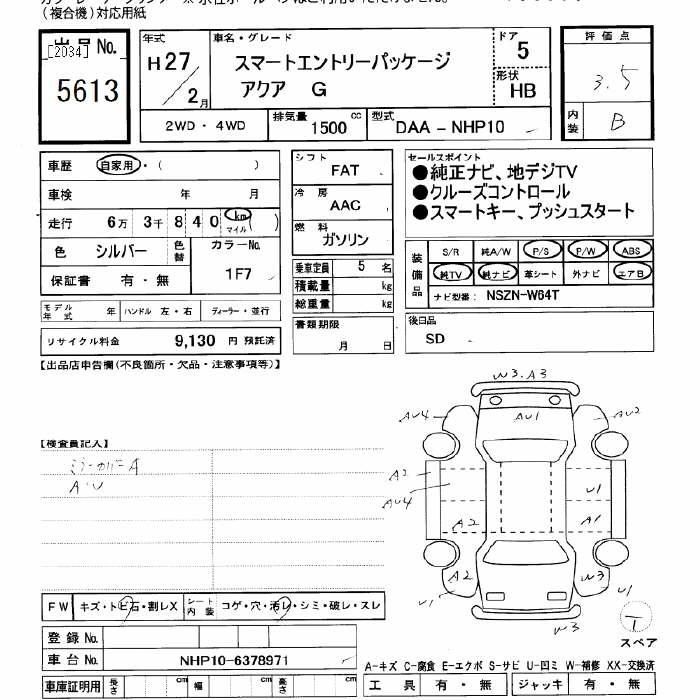 (複合機)対応用紙
出品No.
[2034]
5613
年式
H27/2月
車名・グレード
スマートエントリーパッケージ
アクア G
ドア
5
形状
HB
評価点
3.5
内装
B
2WD・4WD
排気量 1500 cc
型式
DAA-NHP10
車歴 自家用・( )
車検 年 月
走行 6万 3千 840 km マイル ( )
色 シルバー 色替
カラーNo.
1F7
保証書 有・無
シフト
FAT
冷房
AAC
燃料
ガソリン
乗車定員 5 名
積載量 kg
総重量 kg
セールスポイント
●純正ナビ、地デジTV
●クルーズコントロール
●スマートキー、プッシュスタート
装備品
S/R 純A/W P/S P/W ABS
純TV 純ナビ 革シート 外ナビ エアB
ナビ型番: NSZN-W64T
モデル年式 年 ハンドル 左・右 ディーラー・並行
リサイクル料金 9,130 円 預託済
書類期限
月 日
後日品
SD
【出品店申告欄(不良箇所・欠品・注意事項等)】
W3.A3
AU4
AU1
AU2
【検査員記入】
ミラーカバーA
A・U
A2
AU4
U1
A2
A1
A2
W3
U1
U1
W3
T
スペア
FW キズ・トビ石・割レX シート内装 コゲ・穴・汚レ・シミ・破レ・スレ
登録No.
車台No. NHP10-6378971
A-キズ C-腐食 E-エクボ S-サビ U-凹ミ W-補修 XX-交換済
車庫証明用 長さ cm 幅 cm 高さ cm
工具 有・無 ジャッキ 有・無